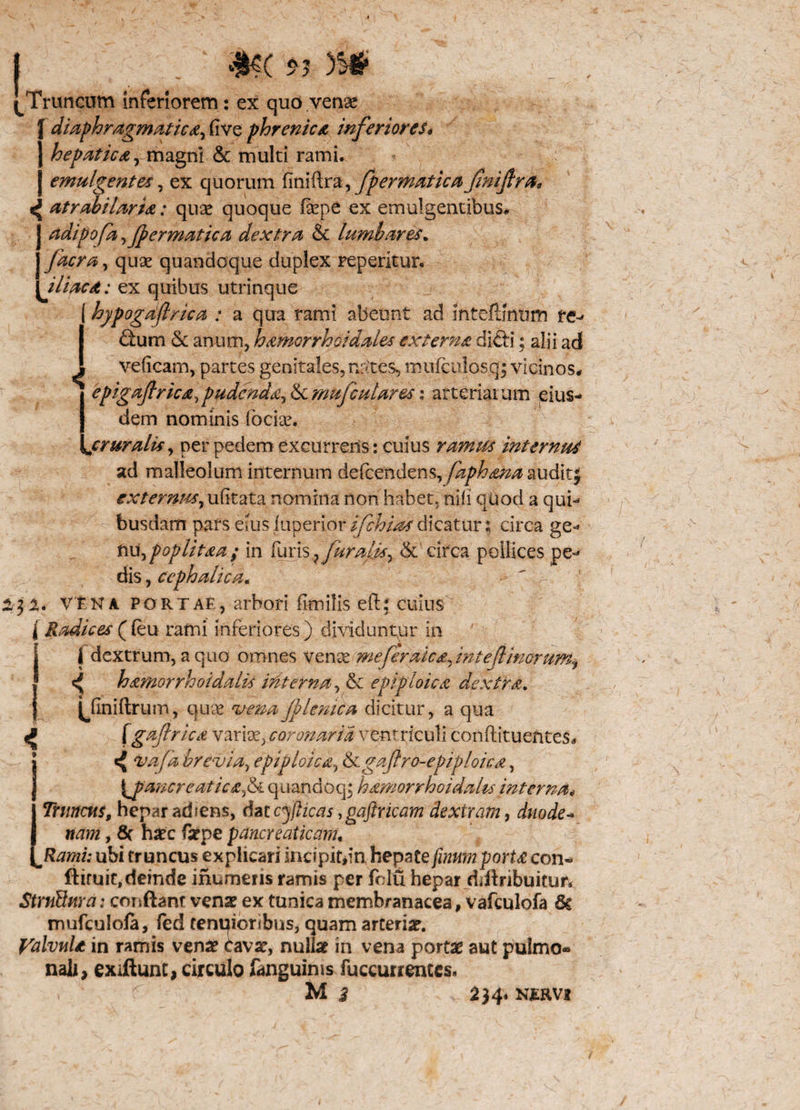 ( 93 )
Truncum inferiorem : ex quo venæ
diaphragmaticæ, ſive phrenicæ inferiores.
hepaticæ, magni & multi rami.
emulgentes, ex quorum ſiniſtra, ſpermatica ſiniſtra.
atrabilariæ : quæ quoque ſæpe ex emulgentibus.
adipoſa, ſpermatica dextra & lumbares.
ſacra, quæ quandoque duplex reperitur.
iliacæ : ex quibus utrinque
hypogaſtrica : a qua rami abeunt ad inteſtinum re-
ctum & anum, hæmorrhoidales externæ dicti ; alii ad
veſicam, partes genitales, nates, muſculosq; vicinos.
epigaſtricæ, pudendæ, & muſculares : arteriarum eius-
dem nominis ſociæ.
cruralis, per pedem excurrens : cuius ramus internus
ad malleolum internum deſcendens, ſaphæna audit;
externus, uſitata nomina non habet, niſi quod a qui-
busdam pars eius ſuperior iſchias dicatur ; circa ge-
nu, poplitæa ; in ſuris, ſuralis, & circa pollices pe-
dis, cephalica.
232. VENA PORTAE, arbori ſimilis eſt ; cuius
Radices (ſeu rami inferiores) dividuntur in
dextrum, a quo omnes venæ meſeraicæ, inteſtinorum,
hæmorrhoidalis interna, & epiploicæ dextræ.
ſiniſtrum, quæ vena ſplenica dicitur, a qua
gaſtricæ variæ, coronaria ventriculi conſtituentes.
vaſa brevia, epiploicæ, & gaſtro-epiploicæ,
pancreaticæ, & quandoq; hæmorrhoidalis interna.
Truncus, hepar adiens, dat cyſticas, gaſtricam dextram, duode-
nam, & hæc ſæpe pancreaticam.
Rami: ubi truncus explicari incipit, in hepate ſinum portæ con-
ſtituit, deinde inumeris ramis per ſolū hepar diſtribuitur.
Structura : conſtant venæ ex tunica membranacea, vaſculoſa &
muſculoſa, ſed tenuioribus, quam arteriæ.
Valvulæ in ramis venæ cavæ, nullæ in vena portæ aut pulmo-
nali, exiſtunt, circulo ſanguinis ſuccurrentes.
M 3 234. NERVI